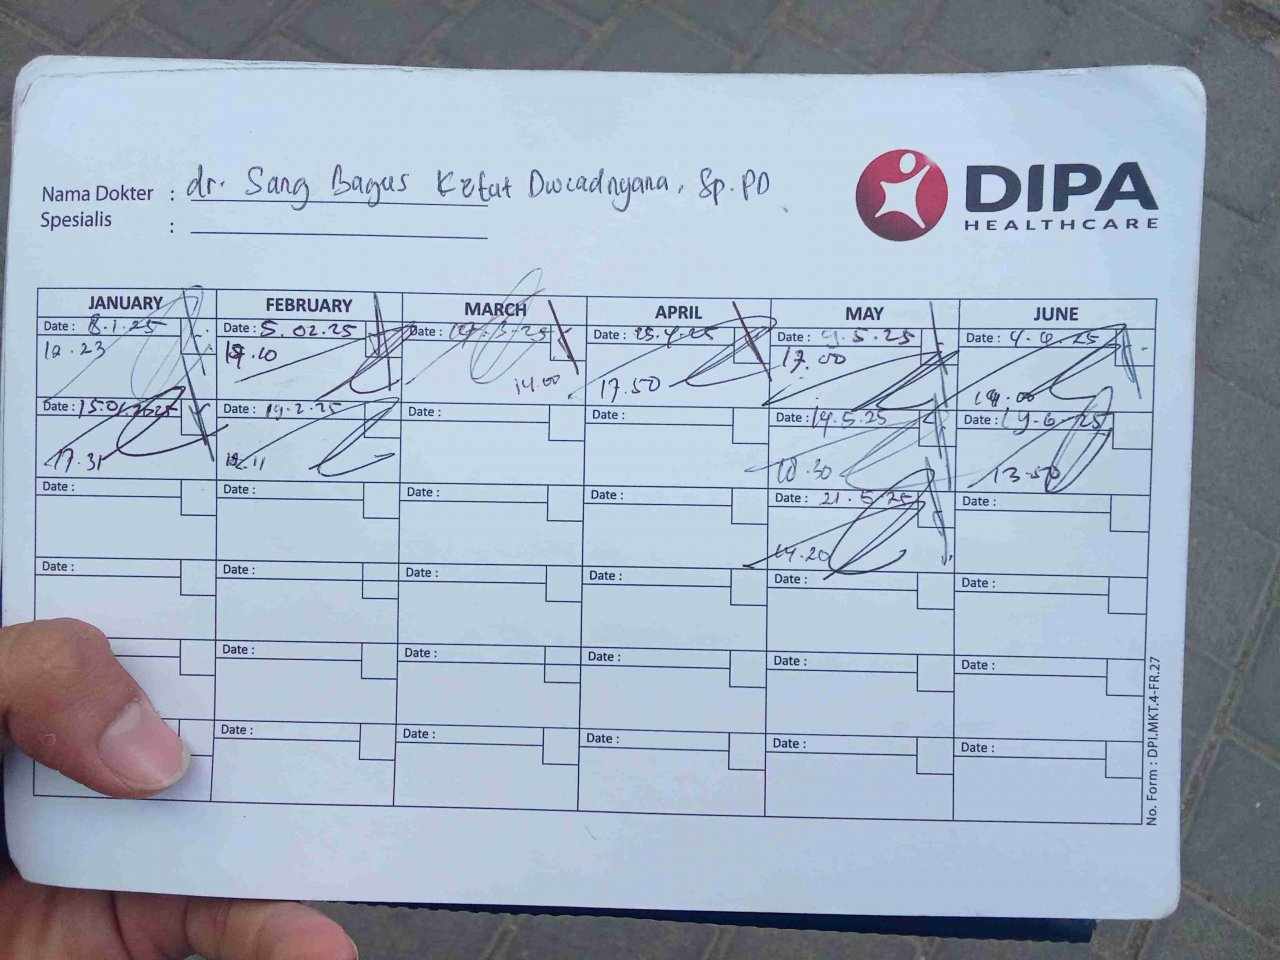 DIPA
HEALTHCARE
Nama Dokter : dr. Sang Bagus Ketut Dwiadnyana, Sp.PD
Spesialis :
JANUARY FEBRUARY MARCH APRIL MAY JUNE
Date : 8.1.25 Date : 5.02.25 Date : Date : 25.4.25 Date : .5.25 Date : 4.6.25
18.23 17.00
14.00 17.50
Date : 15.01.2025 Date : 19.2.25 Date : Date : Date : 14.5.25 Date : 6.25
17.31 18.11 18.30 13.50
Date : Date : Date : Date : Date : 21.5.25 Date :
14.20
Date : Date : Date : Date : Date : Date :
Date : Date : Date : Date : Date :
Date : Date : Date : Date : Date :
No. Form : DPI.MKT.4-FR.27